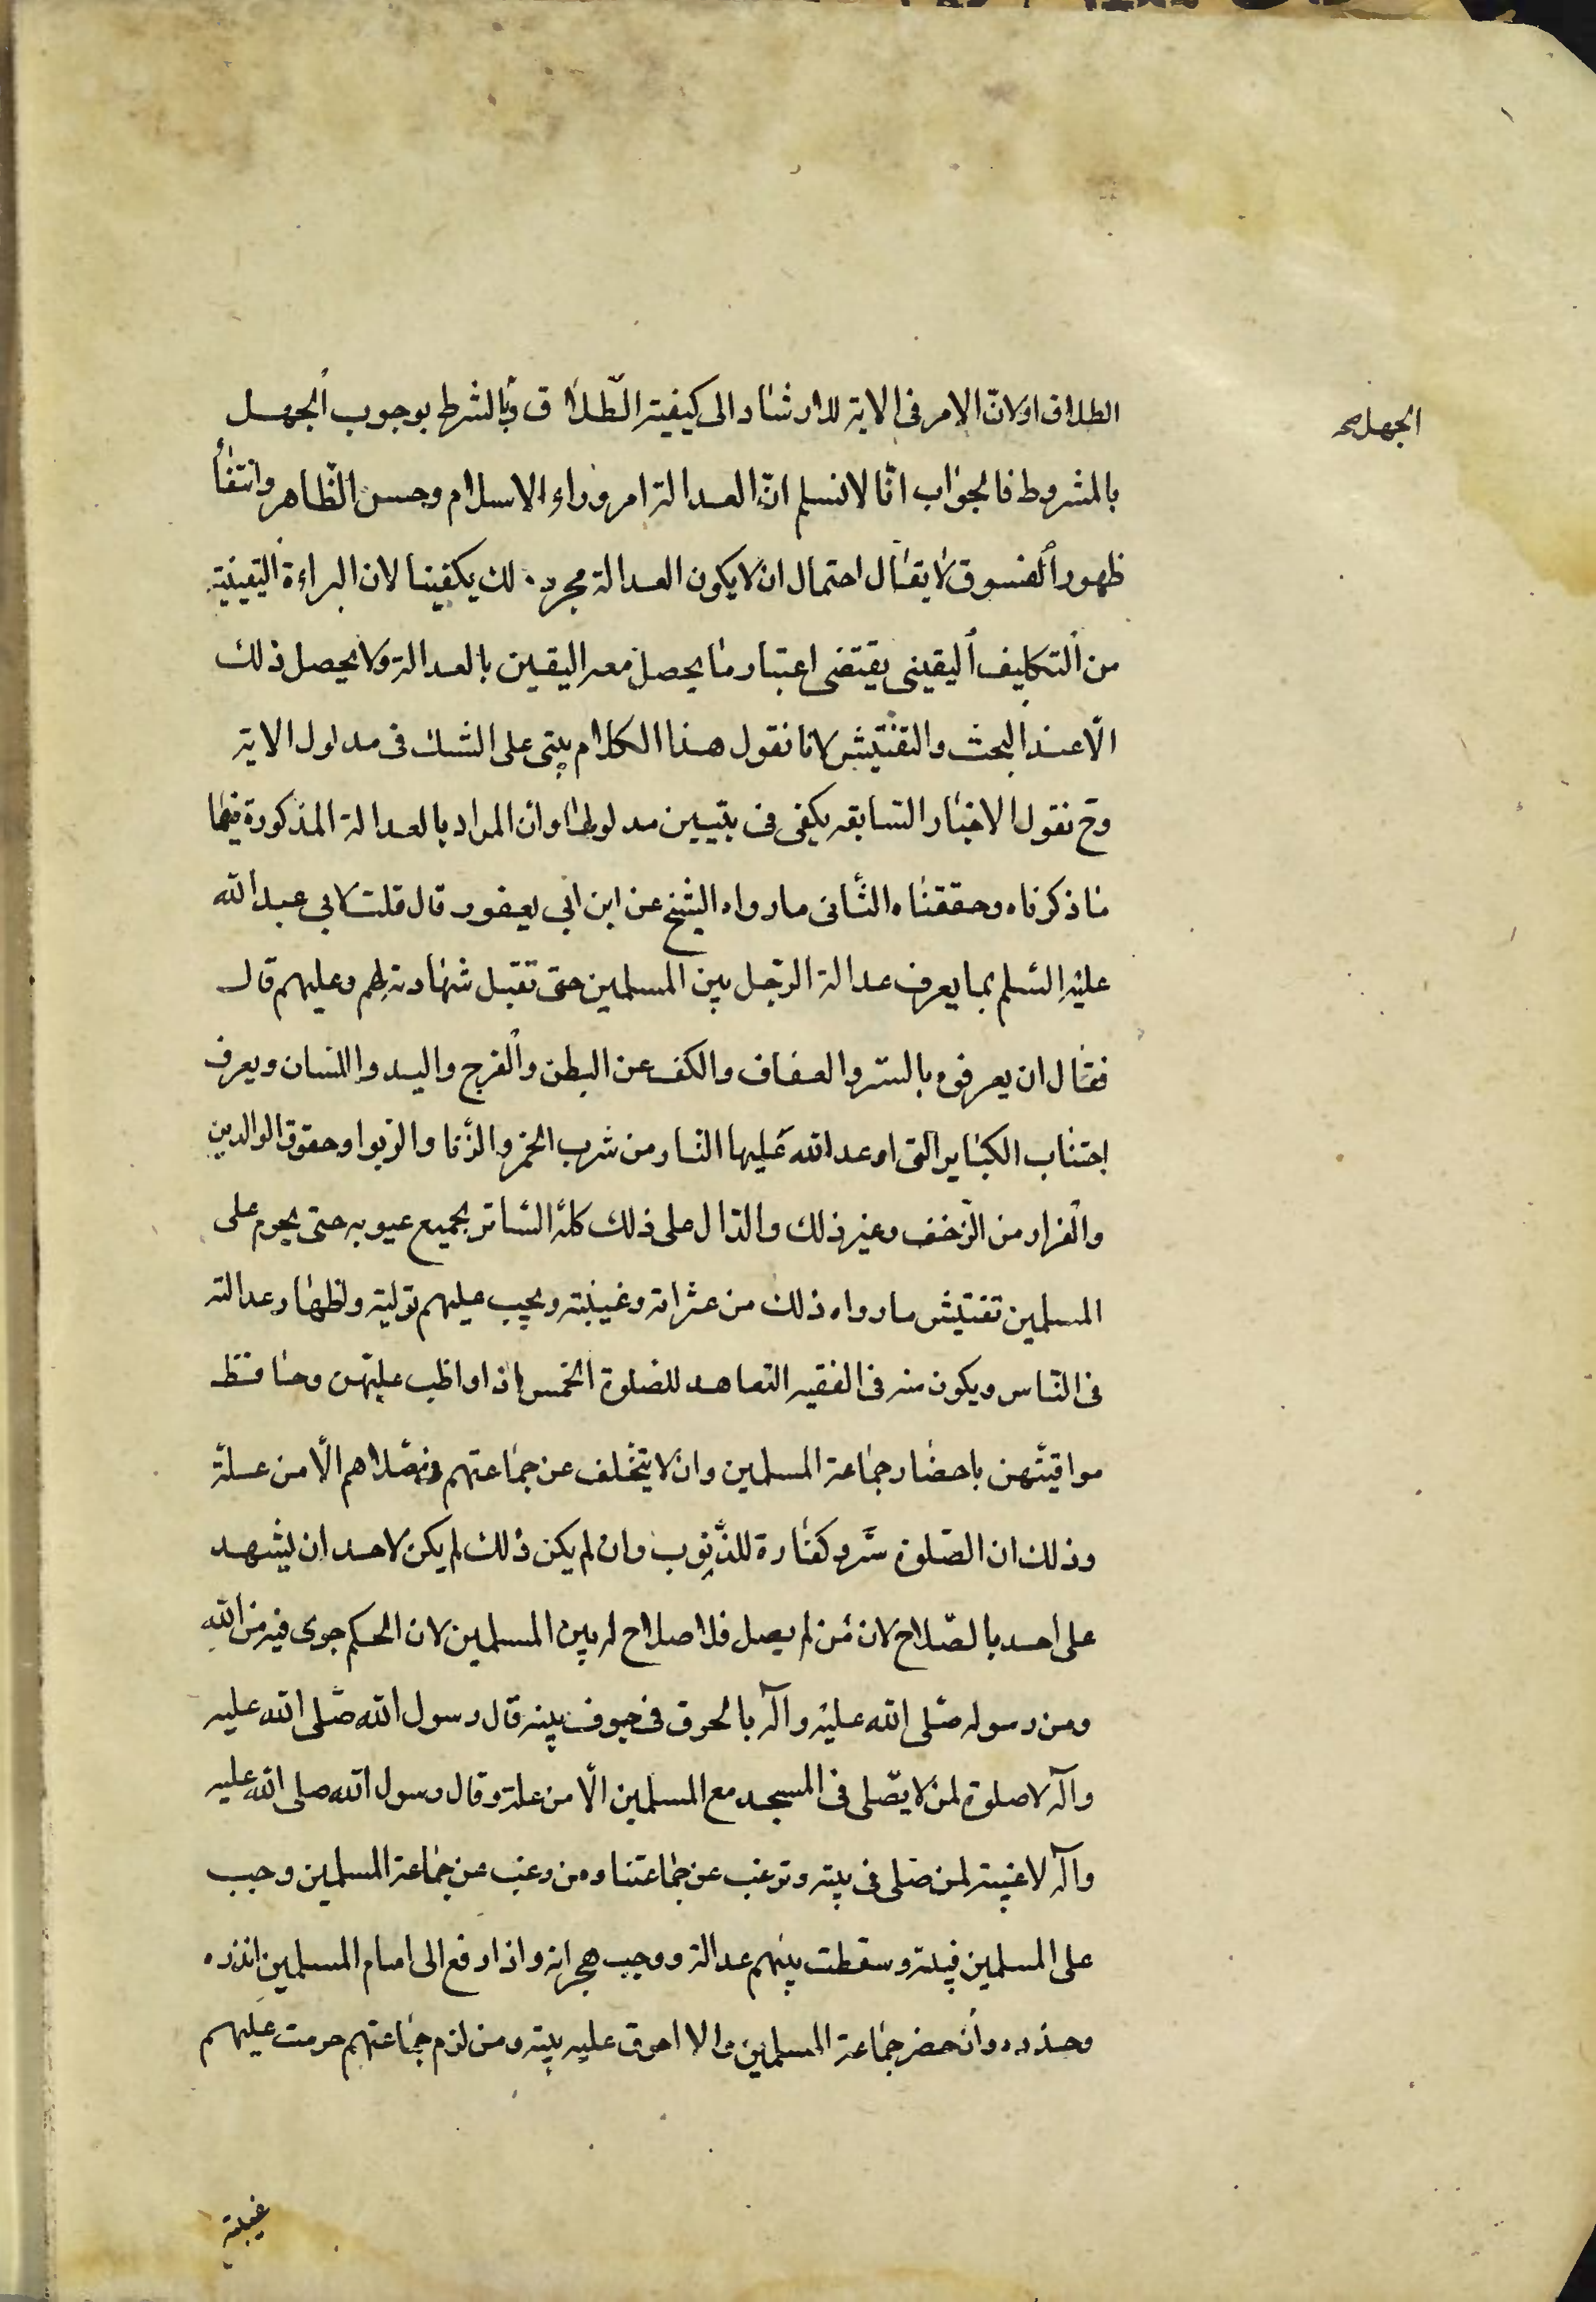 الطلاق اولان الامر فى الاية للارشاد الى كيفية الطلاق وبالشرط بوجوب الجهل
الجهل صح
بالمشروط فالجواب انّا لا نسلم انّ العدالة امر وراء الاسلام وحسن الظاهر وانتفاء
ظهور الفسوق لا يقال احتمال ان لا يكون العدالة مجرد لك يكفينا لان البراءة اليقينية
من التكليف اليقينى يقتضى اعتبار ما يحصل معه اليقين بالعدالة ولا يحصل ذلك
الّا عند البحث والتفتيش لانا نقول هذا الكلام يبتى على الشك فى مدلول الاية
وح نقول الاخبار السابقه يكفى فى تبيين مدلولها وان المراد بالعدالة المذكورة فيها
ما ذكرناه وحققناه الثانى ما رواه الشيخ عن ابن ابى يعفور قال قلت لابى عبد الله
عليه السلم بما يعرف عدالة الرّجل بين المسلمين حتى تقبل شهادته لهم وعليهم قال
فقال ان يعرفوه بالستر والعفاف والكف عن البطن والفرج واليد واللسان ويعرف
اجتناب الكباير التى اوعد الله عليها النار من شرب الخمر والزنا والربوا وحقوق الوالدين
والفرار من الزخف وغير ذلك والدّال على ذلك كله السّاتر بجميع عيوبه حتى يحرم على
المسلمين تفتيش ما رواه ذلك من عثراته وغيبته ويجب عليهم توليته واظهار عدالته
فى النّاس ويكون منه فى الفقيه التعاهد للصلوة الخمس اذا واظب عليهن وحافظ
مواقيتهن باحضار جماعة المسلمين وان لا يتخلف عن جماعتهم ومصلاهم الّا من علة
وذلك ان الصّلوة ستر وكفارة للذّنوب وان لم يكن ذلك لم يكن لاحد ان يشهد
على احد بالصّلاح لان من لم يصل فلا صلاح له بين المسلمين لان الحكم جرى فيه من الله
ومن رسوله صلّى الله عليه وآله بالحرق فى جوف بيته قال رسول الله صلّى الله عليه
وآله لا صلوة لمن لا يصّلى فى المسجد مع المسلمين الّا من علة وقال رسول الله صلى الله عليه
وآله لا غيبة لمن صلى فى بيته وترغب عن جماعتنا ومن رغب عن جماعة المسلمين وجب
على المسلمين غيبته وسقطت بينهم عدالة ووجب هجرانه واذا رفع الى امام المسلمين انذره
وحذره وان حضر جماعة المسلمين والا احرق عليه بيته ومن لزم جماعتهم حرمت عليهم
غيبته